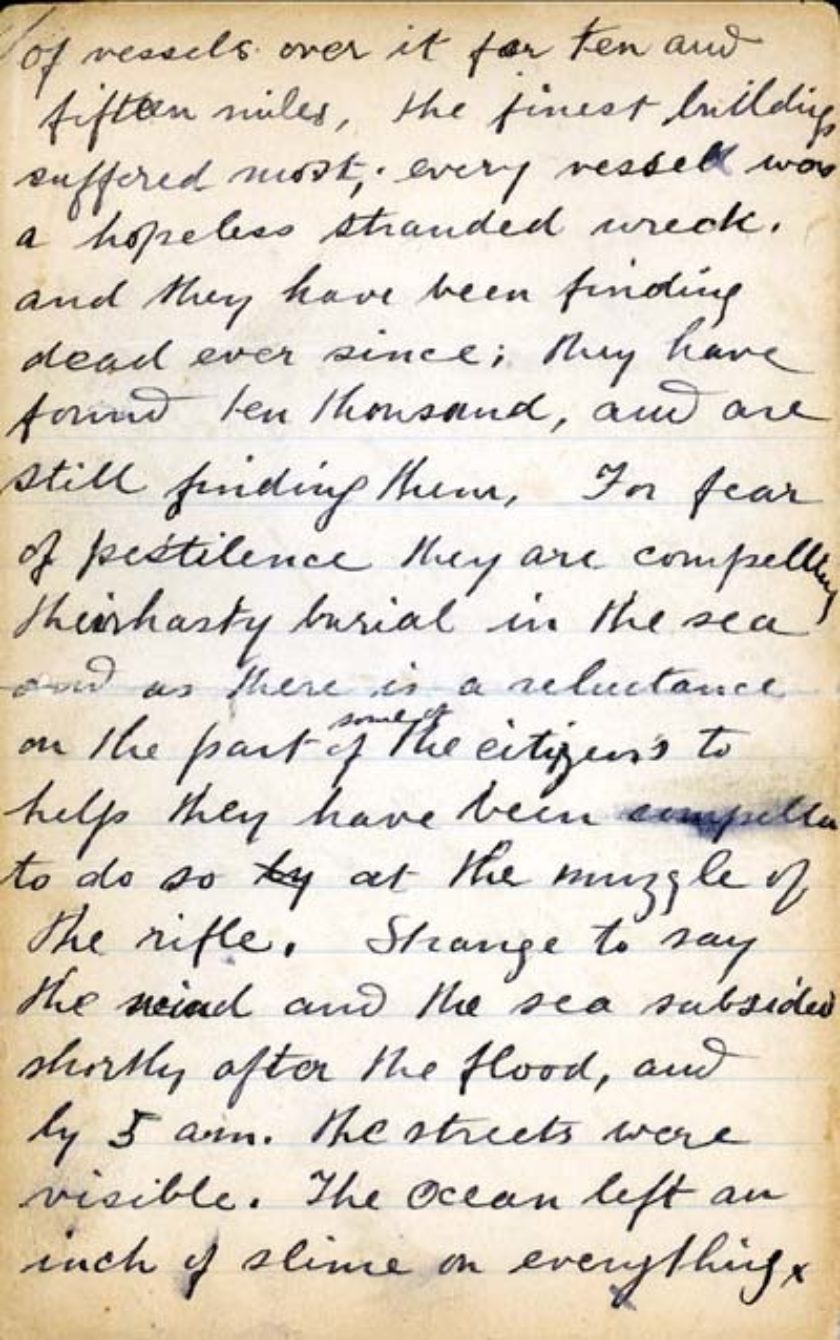 of vessels over it for ten and
fifteen miles, the finest buildings
suffered most; every vessel was
a hopeless stranded wreck.
and they have been finding
dead ever since; they have
found ten thousand, and are
still finding them, For fear
of pestilence they are compelling
their hasty burial in the sea
and as there is a reluctance
on the part of some of the citizens to
help they have been compelled
to do so by at the muzzle of
the rifle. Strange to say
the wind and the sea subsided
shortly after the flood, and
by 5 am. the streets were
visible. The Ocean left an
inch of slime on everything x